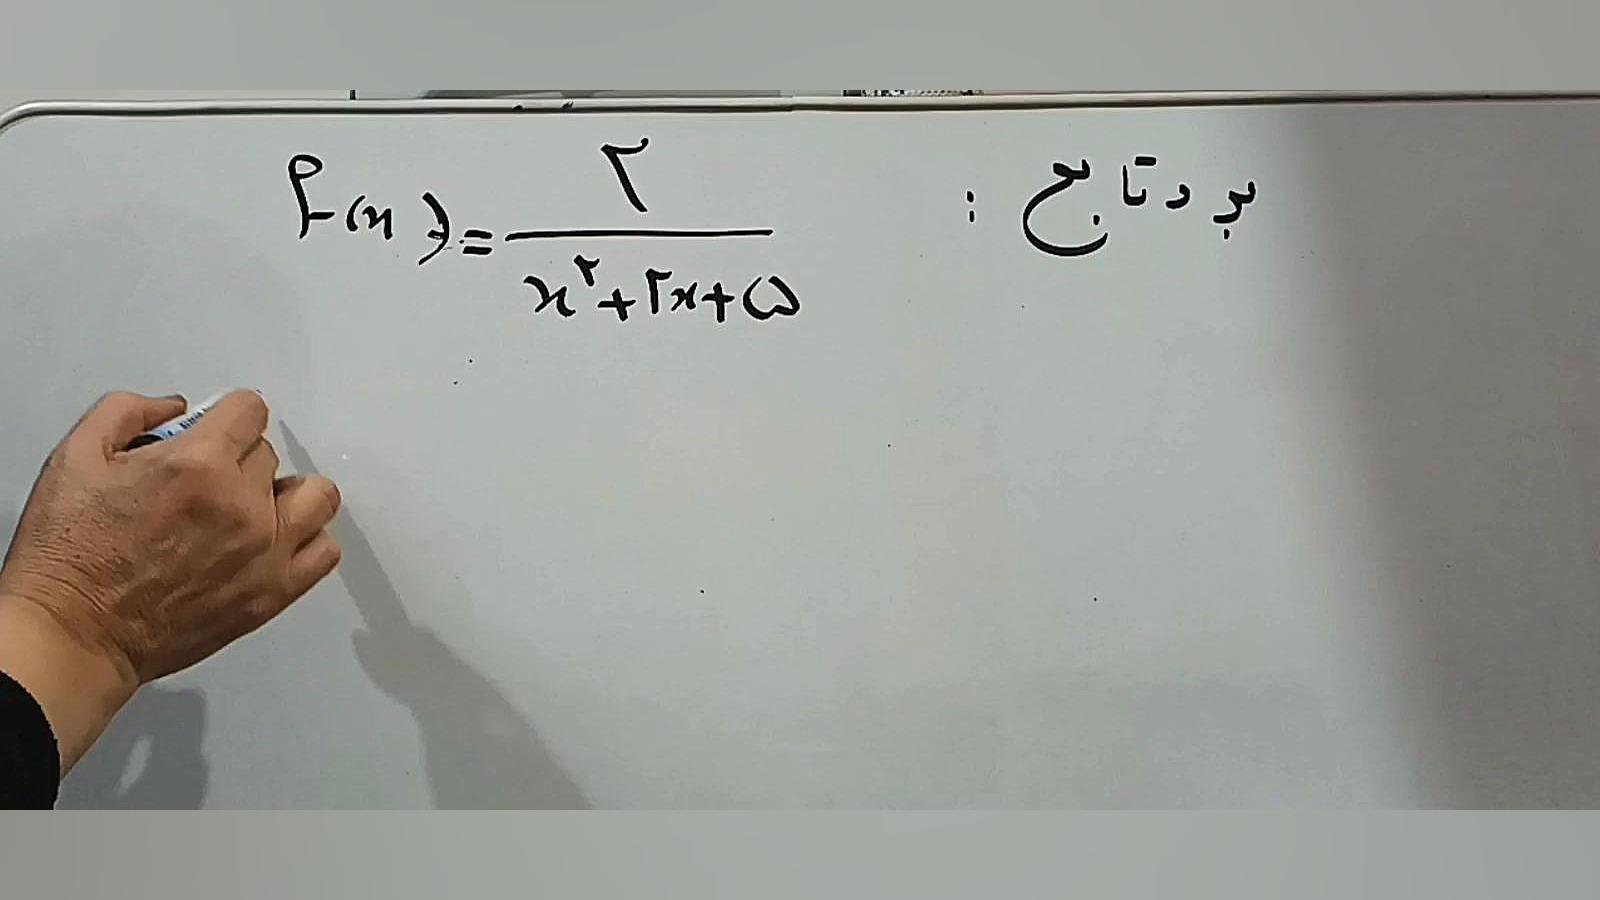 برد تابع :
f(x) = ۲ / x^۲ + ۲x + ۵